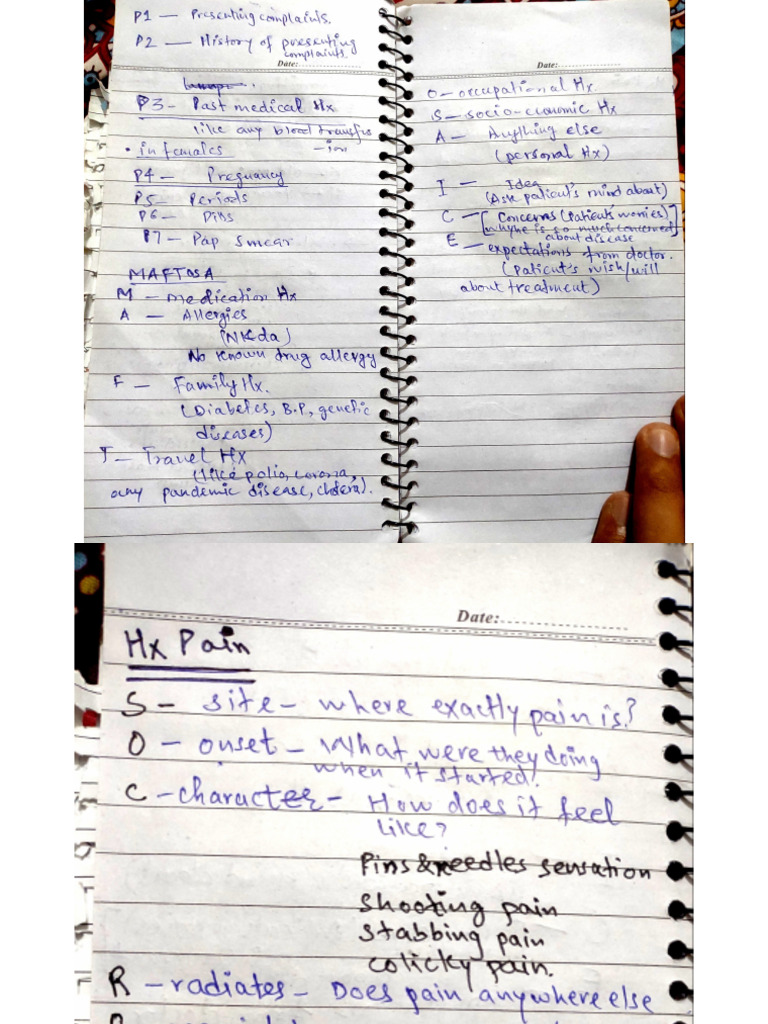 P1 — Presenting complaints.
P2 — History of presenting
complaints.
Date:..................
P3 - Past medical Hx
like any blood transfus
-ion
• in females
P4 - Pregnancy
P5 - Periods
P6 - Pills
P7 - Pap smear
MAFTOSA
M - medication Hx
A - Allergies
(NKda)
No known drug allergy
F - Family Hx.
(Diabetes, B.P, genetic
diseases)
T - Travel Hx
(like polio, corona,
any pandemic disease, cholera).
Date:..................
O - occupational Hx
S - socio-economic Hx
A - Anything else
(personal Hx)
I - Idea
(Ask patient's mind about)
C - [Concerns (patient's worries)]
he is so much concerned
about disease
E - expectations from doctor.
(patient's wish/will
about treatment)
Date:..................
Hx Pain
S - site - where exactly pain is?
O - onset - What were they doing
when it started?
C - character - How does it feel
like?
Pins & needles sensation
shooting pain
stabbing pain
colicky pain.
R - radiates - Does pain anywhere else